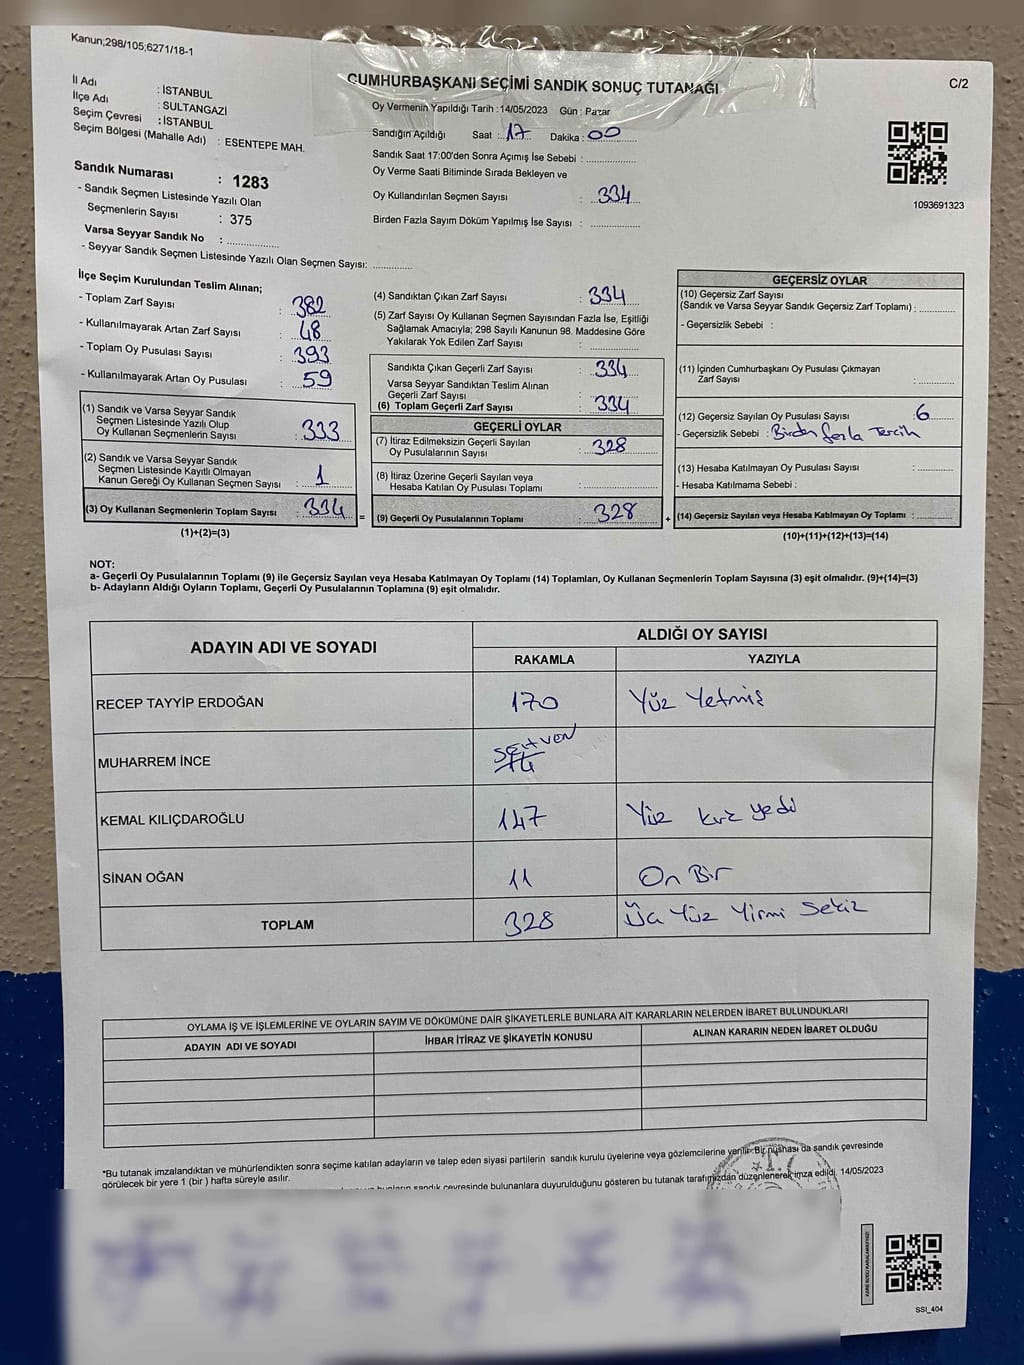 Kanun;298/105;6271/18-1
CUMHURBAŞKANI SEÇİMİ SANDIK SONUÇ TUTANAĞI
C/2
İl Adı : İSTANBUL
İlçe Adı : SULTANGAZİ
Seçim Çevresi : İSTANBUL
Seçim Bölgesi (Mahalle Adı) : ESENTEPE MAH.
Sandık Numarası : 1283
- Sandık Seçmen Listesinde Yazılı Olan
Seçmenlerin Sayısı : 375
Varsa Seyyar Sandık No : ................
- Seyyar Sandık Seçmen Listesinde Yazılı Olan Seçmen Sayısı: ............
Oy Vermenin Yapıldığı Tarih : 14/05/2023 Gün : Pazar
Sandığın Açıldığı Saat : 17 Dakika : 00
Sandık Saat 17:00'den Sonra Açımış İse Sebebi : ...............
Oy Verme Saati Bitiminde Sırada Bekleyen ve
Oy Kullandırılan Seçmen Sayısı : 334
Birden Fazla Sayım Döküm Yapılmış İse Sayısı : ...............
1093691323
İlçe Seçim Kurulundan Teslim Alınan;
- Toplam Zarf Sayısı : 382
- Kullanılmayarak Artan Zarf Sayısı : 48
- Toplam Oy Pusulası Sayısı : 393
- Kullanılmayarak Artan Oy Pusulası : 59
(1) Sandık ve Varsa Seyyar Sandık
Seçmen Listesinde Yazılı Olup
Oy Kullanan Seçmenlerin Sayısı : 333
(2) Sandık ve Varsa Seyyar Sandık
Seçmen Listesinde Kayıtlı Olmayan
Kanun Gereği Oy Kullanan Seçmen Sayısı : 1
(3) Oy Kullanan Seçmenlerin Toplam Sayısı : 334
(1)+(2)=(3)
=
(4) Sandıktan Çıkan Zarf Sayısı : 334
(5) Zarf Sayısı Oy Kullanan Seçmen Sayısından Fazla İse, Eşitliği
Sağlamak Amacıyla; 298 Sayılı Kanunun 98. Maddesine Göre
Yakılarak Yok Edilen Zarf Sayısı : ...............
Sandıkta Çıkan Geçerli Zarf Sayısı : 334
Varsa Seyyar Sandıktan Teslim Alınan
Geçerli Zarf Sayısı : ...............
(6) Toplam Geçerli Zarf Sayısı : 334
GEÇERLİ OYLAR
(7) İtiraz Edilmeksizin Geçerli Sayılan
Oy Pusulalarının Sayısı : 328
(8) İtiraz Üzerine Geçerli Sayılan veya
Hesaba Katılan Oy Pusulası Toplamı : ...............
(9) Geçerli Oy Pusulalarının Toplamı : 328
+
GEÇERSİZ OYLAR
(10) Geçersiz Zarf Sayısı
(Sandık ve Varsa Seyyar Sandık Geçersiz Zarf Toplamı) : ............
- Geçersizlik Sebebi :
(11) İçinden Cumhurbaşkanı Oy Pusulası Çıkmayan
Zarf Sayısı : ............
(12) Geçersiz Sayılan Oy Pusulası Sayısı : 6
- Geçersizlik Sebebi : Birden fazla Tercih
(13) Hesaba Katılmayan Oy Pusulası Sayısı : ............
- Hesaba Katılmama Sebebi :
(14) Geçersiz Sayılan veya Hesaba Katılmayan Oy Toplamı : ............
(10)+(11)+(12)+(13)=(14)
NOT:
a- Geçerli Oy Pusulalarının Toplamı (9) ile Geçersiz Sayılan veya Hesaba Katılmayan Oy Toplamı (14) Toplamları, Oy Kullanan Seçmenlerin Toplam Sayısına (3) eşit olmalıdır. (9)+(14)=(3)
b- Adayların Aldığı Oyların Toplamı, Geçerli Oy Pusulalarının Toplamına (9) eşit olmalıdır.
ADAYIN ADI VE SOYADI
ALDIĞI OY SAYISI
RAKAMLA YAZIYLA
RECEP TAYYİP ERDOĞAN 170 Yüz Yetmiş
MUHARREM İNCE SEHVEN
KEMAL KILIÇDAROĞLU 147 Yüz kırz yedi
SİNAN OĞAN 11 On Bir
TOPLAM 328 Üç Yüz Yirmi Sekiz
OYLAMA İŞ VE İŞLEMLERİNE VE OYLARIN SAYIM VE DÖKÜMÜNE DAİR ŞİKAYETLERLE BUNLARA AİT KARARLARIN NELERDEN İBARET BULUNDUKLARI
ADAYIN ADI VE SOYADI İHBAR İTİRAZ VE ŞİKAYETİN KONUSU ALINAN KARARIN NEDEN İBARET OLDUĞU
*Bu tutanak imzalandıktan ve mühürlendikten sonra seçime katılan adayların ve talep eden siyasi partilerin sandık kurulu üyelerine veya gözlemcilerine verilir. Bir nüshası da sandık çevresinde
görülecek bir yere 1 (bir ) hafta süreyle asılır.
bunların sandık çevresinde bulunanlara duyurulduğunu gösteren bu tutanak tarafımızdan düzenlenerek imza edildi. 14/05/2023
T.
SSI_404